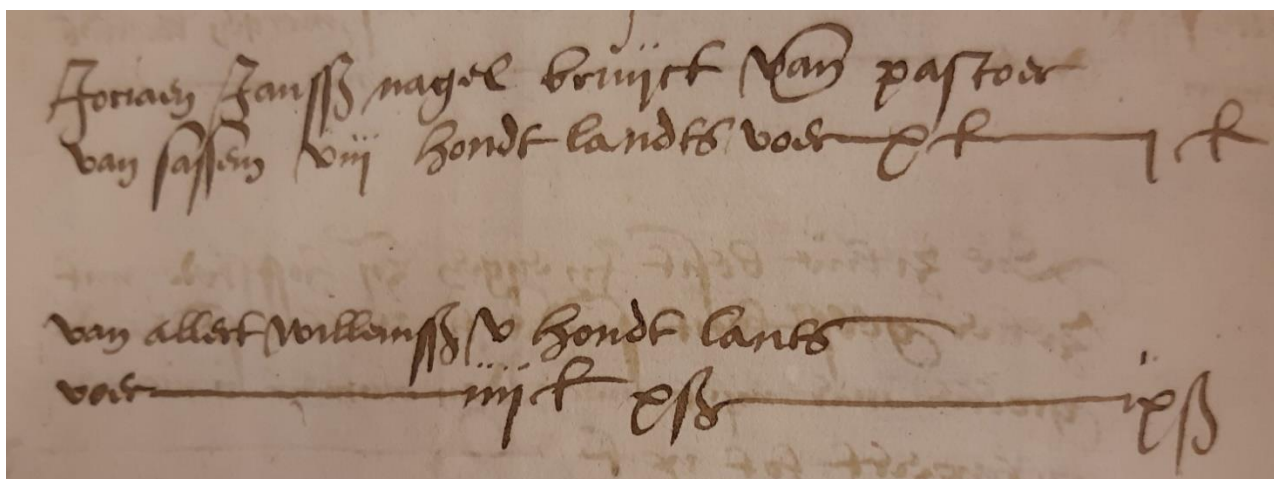 Joriaen Janssz nagel bruijct van pastoer
van sassem viij hondt landts voer x £ j £
van allert willemssz v hondt lants
voer iiij £ x sz ix sz